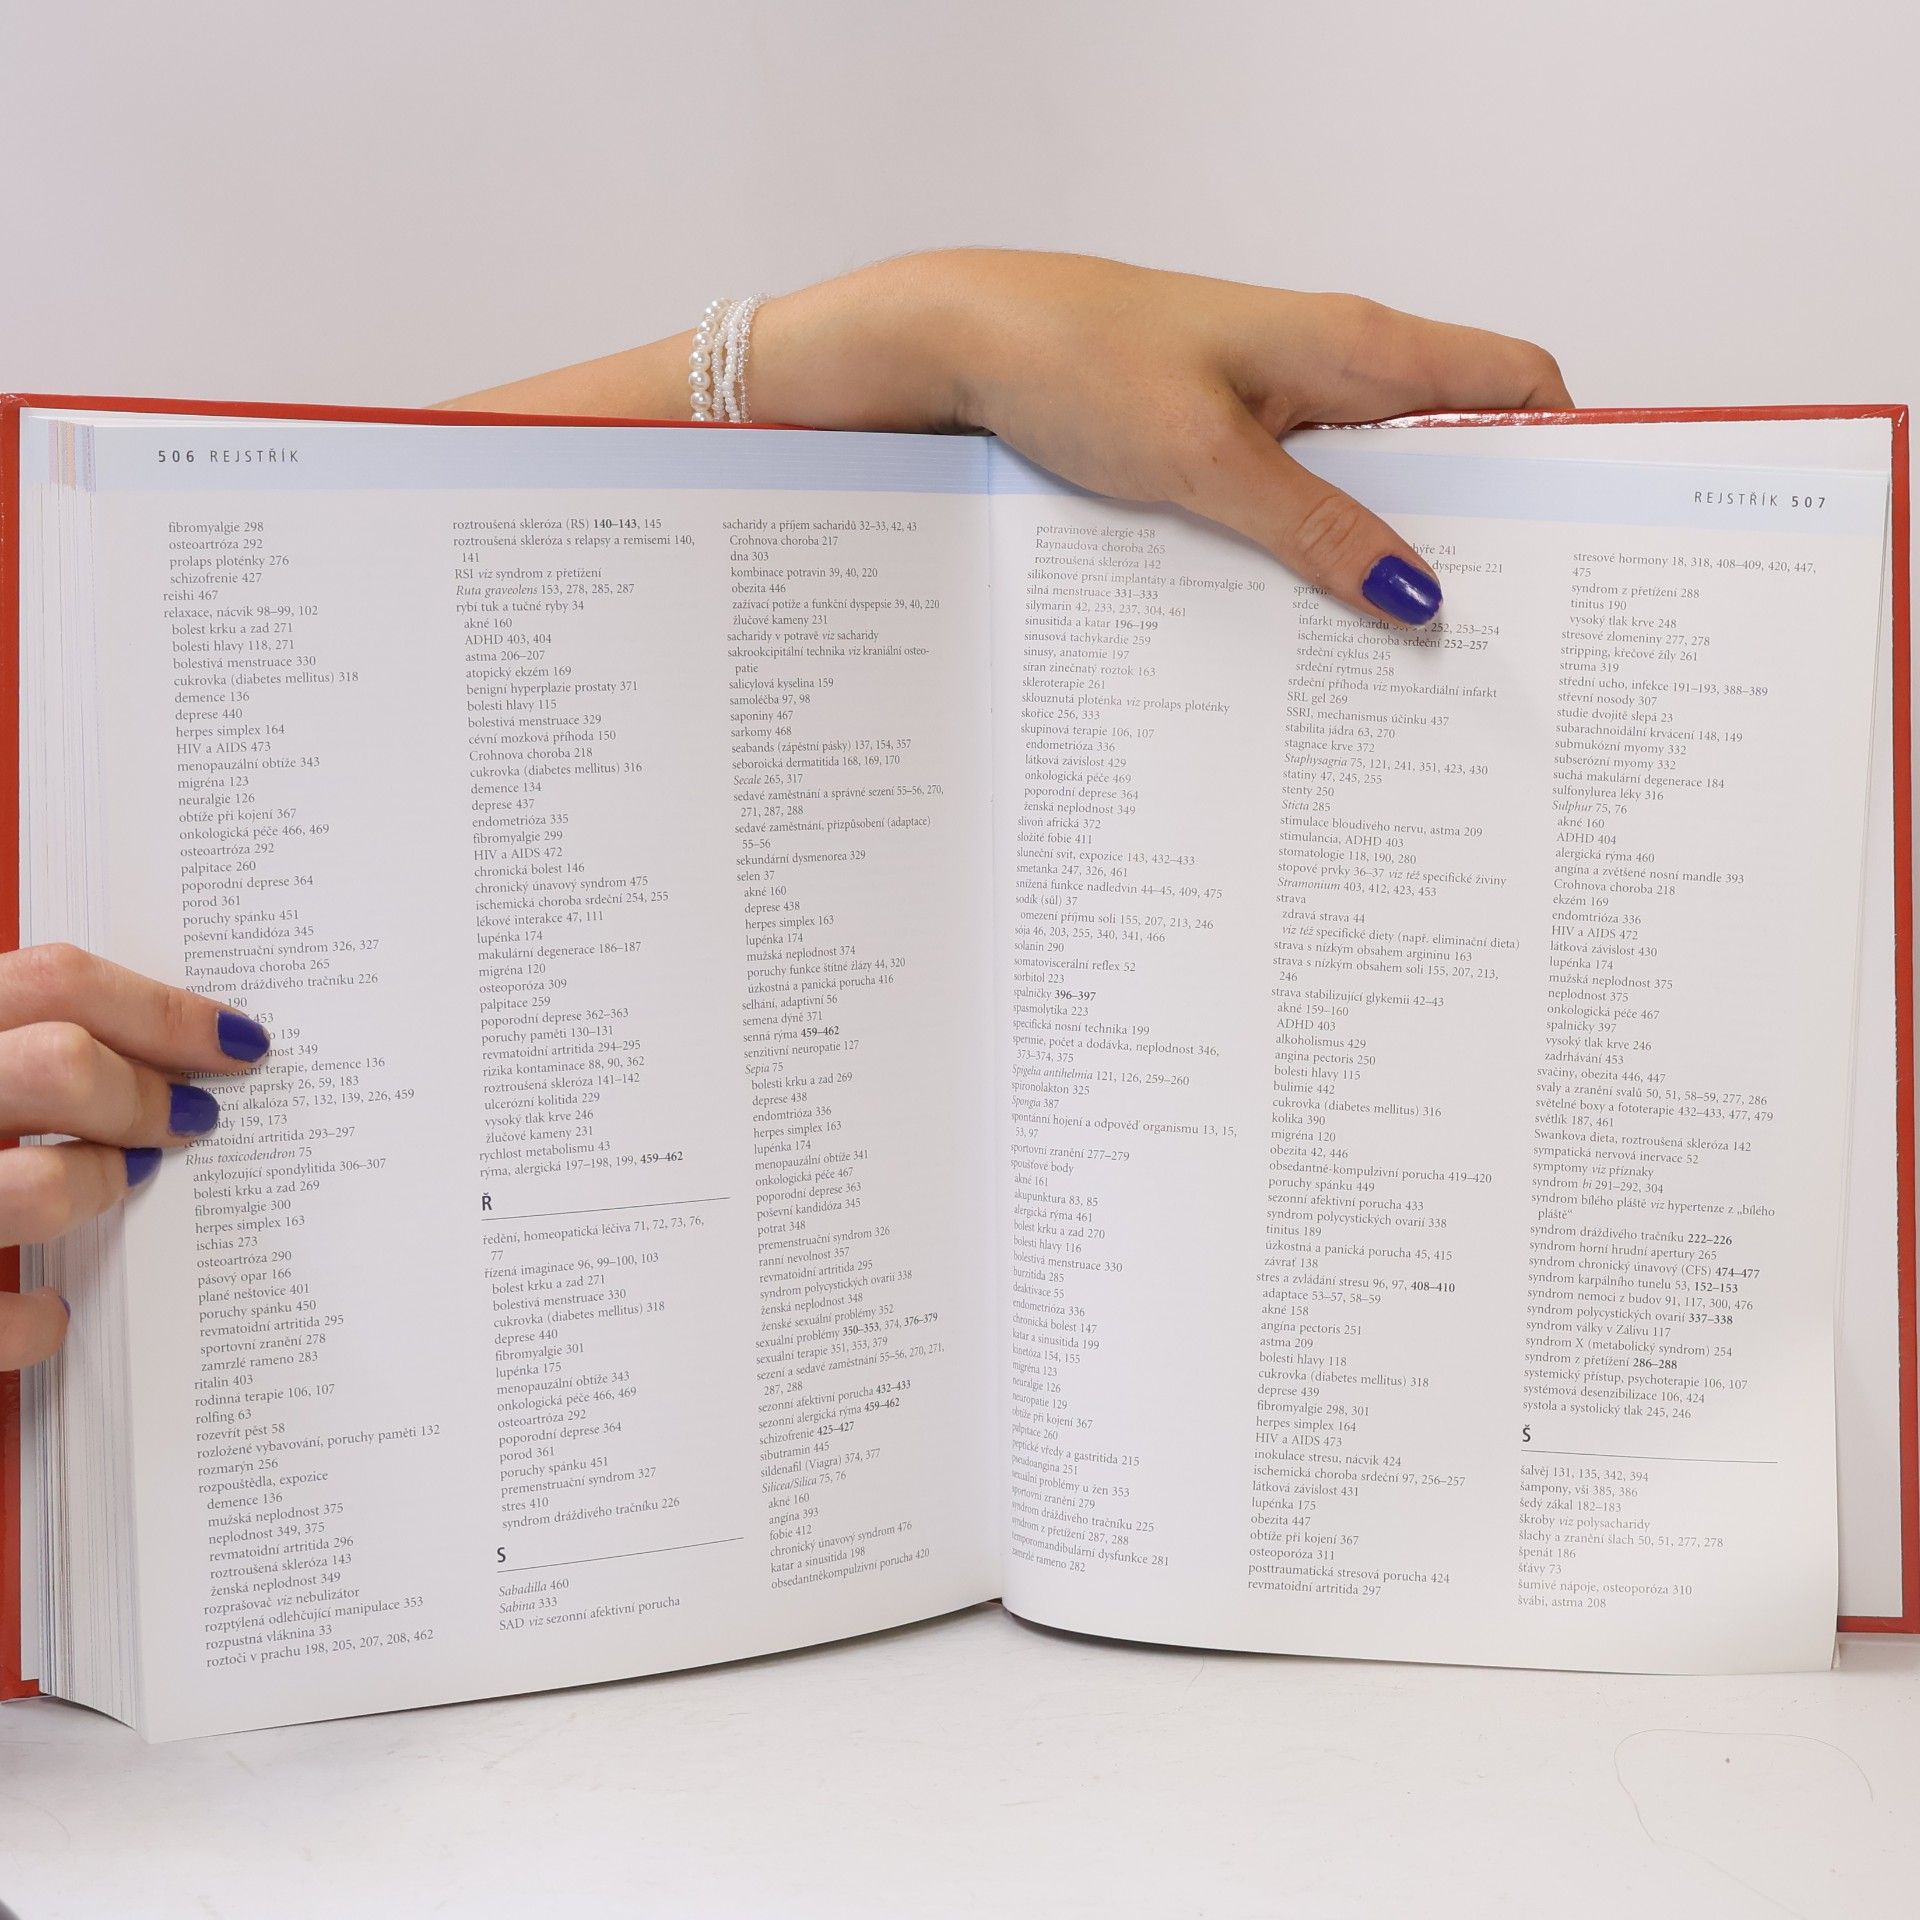 506 REJSTŘÍK
fibromyalgie 298
osteoartróza 292
prolaps ploténky 276
schizofrenie 427
reishi 467
relaxace, nácvik 98–99, 102
bolest krku a zad 271
bolesti hlavy 118, 271
bolestivá menstruace 330
cukrovka (diabetes mellitus) 318
demence 136
deprese 440
herpes simplex 164
HIV a AIDS 473
menopauzální obtíže 343
migréna 123
neuralgie 126
obtíže při kojení 367
onkologická péče 466, 469
osteoartróza 292
palpitace 260
poporodní deprese 364
porod 361
poruchy spánku 451
poševní kandidóza 345
premenstruační syndrom 326, 327
Raynaudova choroba 265
syndrom dráždivého tračníku 226
190
453
139
349
terapie, demence 136
paprsky 26, 59, 183
alkalóza 57, 132, 139, 226, 459
159, 173
revmatoidní artritida 293–297
Rhus toxicodendron 75
ankylozující spondylitida 306–307
bolesti krku a zad 269
fibromyalgie 300
herpes simplex 163
ischias 273
osteoartróza 290
pásový opar 166
plané neštovice 401
poruchy spánku 450
revmatoidní artritida 295
sportovní zranění 278
zamrzlé rameno 283
ritalin 403
rodinná terapie 106, 107
rolfing 63
rozevřít pěst 58
rozložené vybavování, poruchy paměti 132
rozmarýn 256
rozpouštědla, expozice
demence 136
mužská neplodnost 375
neplodnost 349, 375
revmatoidní artritida 296
roztroušená skleróza 143
ženská neplodnost 349
rozprašovač viz nebulizátor
rozptýlená odlehčující manipulace 353
rozpustná vláknina 33
roztoči v prachu 198, 205, 207, 208, 462
roztroušená skleróza (RS) 140–143, 145
roztroušená skleróza s relapsy a remisemi 140,
141
RSI viz syndrom z přetížení
Ruta graveolens 153, 278, 285, 287
rybí tuk a tučné ryby 34
akné 160
ADHD 403, 404
astma 206–207
atopický ekzém 169
benigní hyperplazie prostaty 371
bolesti hlavy 115
bolestivá menstruace 329
cévní mozková příhoda 150
Crohnova choroba 218
cukrovka (diabetes mellitus) 316
demence 134
deprese 437
endometrióza 335
fibromyalgie 299
HIV a AIDS 472
chronická bolest 146
chronický únavový syndrom 475
ischemická choroba srdeční 254, 255
lékové interakce 47, 111
lupénka 174
makulární degenerace 186–187
migréna 120
osteoporóza 309
palpitace 259
poporodní deprese 362–363
poruchy paměti 130–131
revmatoidní artritida 294–295
rizika kontaminace 88, 90, 362
roztroušená skleróza 141–142
ulcerózní kolitida 229
vysoký tlak krve 246
žlučové kameny 231
rychlost metabolismu 43
rýma, alergická 197–198, 199, 459–462
Ř
ředění, homeopatická léčiva 71, 72, 73, 76,
77
řízená imaginace 96, 99–100, 103
bolest krku a zad 271
bolestivá menstruace 330
cukrovka (diabetes mellitus) 318
deprese 440
fibromyalgie 301
lupénka 175
menopauzální obtíže 343
onkologická péče 466, 469
osteoartróza 292
poporodní deprese 364
porod 361
poruchy spánku 451
premenstruační syndrom 327
stres 410
syndrom dráždivého tračníku 226
S
Sabadilla 460
Sabina 333
SAD viz sezonní afektivní porucha
sacharidy a příjem sacharidů 32–33, 42, 43
Crohnova choroba 217
dna 303
kombinace potravin 39, 40, 220
obezita 446
zažívací potíže a funkční dyspepsie 39, 40, 220
žlučové kameny 231
sacharidy v potravě viz sacharidy
sakrookcipitální technika viz kraniální osteo-
patie
salicylová kyselina 159
samoléčba 97, 98
saponiny 467
sarkomy 468
seabands (zápěstní pásky) 137, 154, 357
seboroická dermatitida 168, 169, 170
Secale 265, 317
sedavé zaměstnání a správné sezení 55–56, 270,
271, 287, 288
sedavé zaměstnání, přizpůsobení (adaptace)
55–56
sekundární dysmenorea 329
selen 37
akné 160
deprese 438
herpes simplex 163
lupénka 174
mužská neplodnost 374
poruchy funkce štítné žlázy 44, 320
úzkostná a panická porucha 416
selhání, adaptivní 56
semena dýně 371
senná rýma 459–462
senzitivní neuropatie 127
Sepia 75
bolesti krku a zad 269
deprese 438
endomtrióza 336
herpes simplex 163
lupénka 174
menopauzální obtíže 341
onkologická péče 467
poporodní deprese 363
poševní kandidóza 345
potrat 348
premenstruační syndrom 326
ranní nevolnost 357
revmatoidní artritida 295
syndrom polycystických ovarií 338
ženská neplodnost 348
ženské sexuální problémy 352
sexuální problémy 350–353, 374, 376–379
sexuální terapie 351, 353, 379
sezení a sedavé zaměstnání 55–56, 270, 271,
287, 288
sezonní afektivní porucha 432–433
sezonní alergická rýma 459–462
schizofrenie 425–427
sibutramin 445
sildenafil (Viagra) 374, 377
Silicea/Silica 75, 76
akné 160
angína 393
fobie 412
chronický únavový syndrom 476
katar a sinusitida 198
obsedantněkompulzivní porucha 420
REJSTŘÍK 507
potravinové alergie 458
Raynaudova choroba 265
roztroušená skleróza 142
silikonové prsní implantáty a fibromyalgie 300
silná menstruace 331–333
silymarin 42, 233, 237, 304, 461
sinusitida a katar 196–199
sinusová tachykardie 259
sinusy, anatomie 197
síran zinečnatý roztok 163
skleroterapie 261
sklouznutá ploténka viz prolaps ploténky
skořice 256, 333
skupinová terapie 106, 107
endometrióza 336
látková závislost 429
onkologická péče 469
poporodní deprese 364
ženská neplodnost 349
slivoň africká 372
složité fobie 411
sluneční svit, expozice 143, 432–433
smetanka 247, 326, 461
snížená funkce nadledvin 44–45, 409, 475
sodík (sůl) 37
omezení příjmu soli 155, 207, 213, 246
sója 46, 203, 255, 340, 341, 466
solanin 290
somatoviscerální reflex 52
sorbitol 223
spalničky 396–397
spasmolytika 223
specifická nosní technika 199
spermie, počet a dodávka, neplodnost 346,
373–374, 375
Spigelia antihelmia 121, 126, 259–260
spironolakton 325
Spongia 387
spontánní hojení a odpověď organismu 13, 15,
53, 97
sportovní zranění 277–279
spoušťové body
akné 161
akupunktura 83, 85
alergická rýma 461
bolest krku a zad 270
bolesti hlavy 116
bolestivá menstruace 330
burzitida 285
deaktivace 55
endometrióza 336
chronická bolest 147
katar a sinusitida 199
kinetóza 154, 155
migréna 123
neuralgie 126
neuropatie 129
obtíže při kojení 367
palpitace 260
peptické vředy a gastritida 215
pseudoangina 251
sexuální problémy u žen 353
sportovní zranění 279
syndrom dráždivého tračníku 225
syndrom z přetížení 287, 288
temporomandibulární dysfunkce 281
zamrzlé rameno 282
241
dyspepsie 221
srdce
infarkt myokardu 252, 253–254
ischemická choroba srdeční 252–257
srdeční cyklus 245
srdeční rytmus 258
srdeční příhoda viz myokardiální infarkt
SRL gel 269
SSRI, mechanismus účinku 437
stabilita jádra 63, 270
stagnace krve 372
Staphysagria 75, 121, 241, 351, 423, 430
statiny 47, 245, 255
stenty 250
Sticta 285
stimulace bloudivého nervu, astma 209
stimulancia, ADHD 403
stomatologie 118, 190, 280
stopové prvky 36–37 viz též specifické živiny
Stramonium 403, 412, 423, 453
strava
zdravá strava 44
viz též specifické diety (např. eliminační dieta)
strava s nízkým obsahem argininu 163
strava s nízkým obsahem soli 155, 207, 213,
246
strava stabilizující glykemii 42–43
akné 159–160
ADHD 403
alkoholismus 429
angina pectoris 250
bolesti hlavy 115
bulimie 442
cukrovka (diabetes mellitus) 316
kolika 390
migréna 120
obezita 42, 446
obsedantně-kompulzivní porucha 419–420
poruchy spánku 449
sezonní afektivní porucha 433
syndrom polycystických ovarií 338
tinitus 189
úzkostná a panická porucha 45, 415
závrať 138
stres a zvládání stresu 96, 97, 408–410
adaptace 53–57, 58–59
akné 158
angina pectoris 251
astma 209
bolesti hlavy 118
cukrovka (diabetes mellitus) 318
deprese 439
fibromyalgie 298, 301
herpes simplex 164
HIV a AIDS 473
inokulace stresu, nácvik 424
ischemická choroba srdeční 97, 256–257
látková závislost 431
lupénka 175
obezita 447
obtíže při kojení 367
osteoporóza 311
posttraumatická stresová porucha 424
revmatoidní artritida 297
stresové hormony 18, 318, 408–409, 420, 447,
475
syndrom z přetížení 288
tinitus 190
vysoký tlak krve 248
stresové zlomeniny 277, 278
stripping, křečové žíly 261
struma 319
střední ucho, infekce 191–193, 388–389
střevní nosody 307
studie dvojitě slepá 23
subarachnoidální krvácení 148, 149
submukózní myomy 332
subserózní myomy 332
suchá makulární degenerace 184
sulfonylurea léky 316
Sulphur 75, 76
akné 160
ADHD 404
alergická rýma 460
angína a zvětšené nosní mandle 393
Crohnova choroba 218
ekzém 169
endomtrióza 336
HIV a AIDS 472
látková závislost 430
lupénka 174
mužská neplodnost 375
neplodnost 375
onkologická péče 467
spalničky 397
vysoký tlak krve 246
zadrhávání 453
svačiny, obezita 446, 447
svaly a zranění svalů 50, 51, 58–59, 277, 286
světelné boxy a fototerapie 432–433, 477, 479
světlík 187, 461
Swankova dieta, roztroušená skleróza 142
sympatická nervová inervace 52
symptomy viz příznaky
syndrom bi 291–292, 304
syndrom bílého pláště viz hypertenze z „bílého
pláště“
syndrom dráždivého tračníku 222–226
syndrom horní hrudní apertury 265
syndrom chronický únavový (CFS) 474–477
syndrom karpálního tunelu 53, 152–153
syndrom nemocí z budov 91, 117, 300, 476
syndrom polycystických ovarií 337–338
syndrom války v Zálivu 117
syndrom X (metabolický syndrom) 254
syndrom z přetížení 286–288
systemický přístup, psychoterapie 106, 107
systémová desenzibilizace 106, 424
systola a systolický tlak 245, 246
Š
šalvěj 131, 135, 342, 394
šampony, vši 385, 386
šedý zákal 182–183
škroby viz polysacharidy
šlachy a zranění šlach 50, 51, 277, 278
špenát 186
šťávy 73
šumivé nápoje, osteoporóza 310
švábi, astma 208